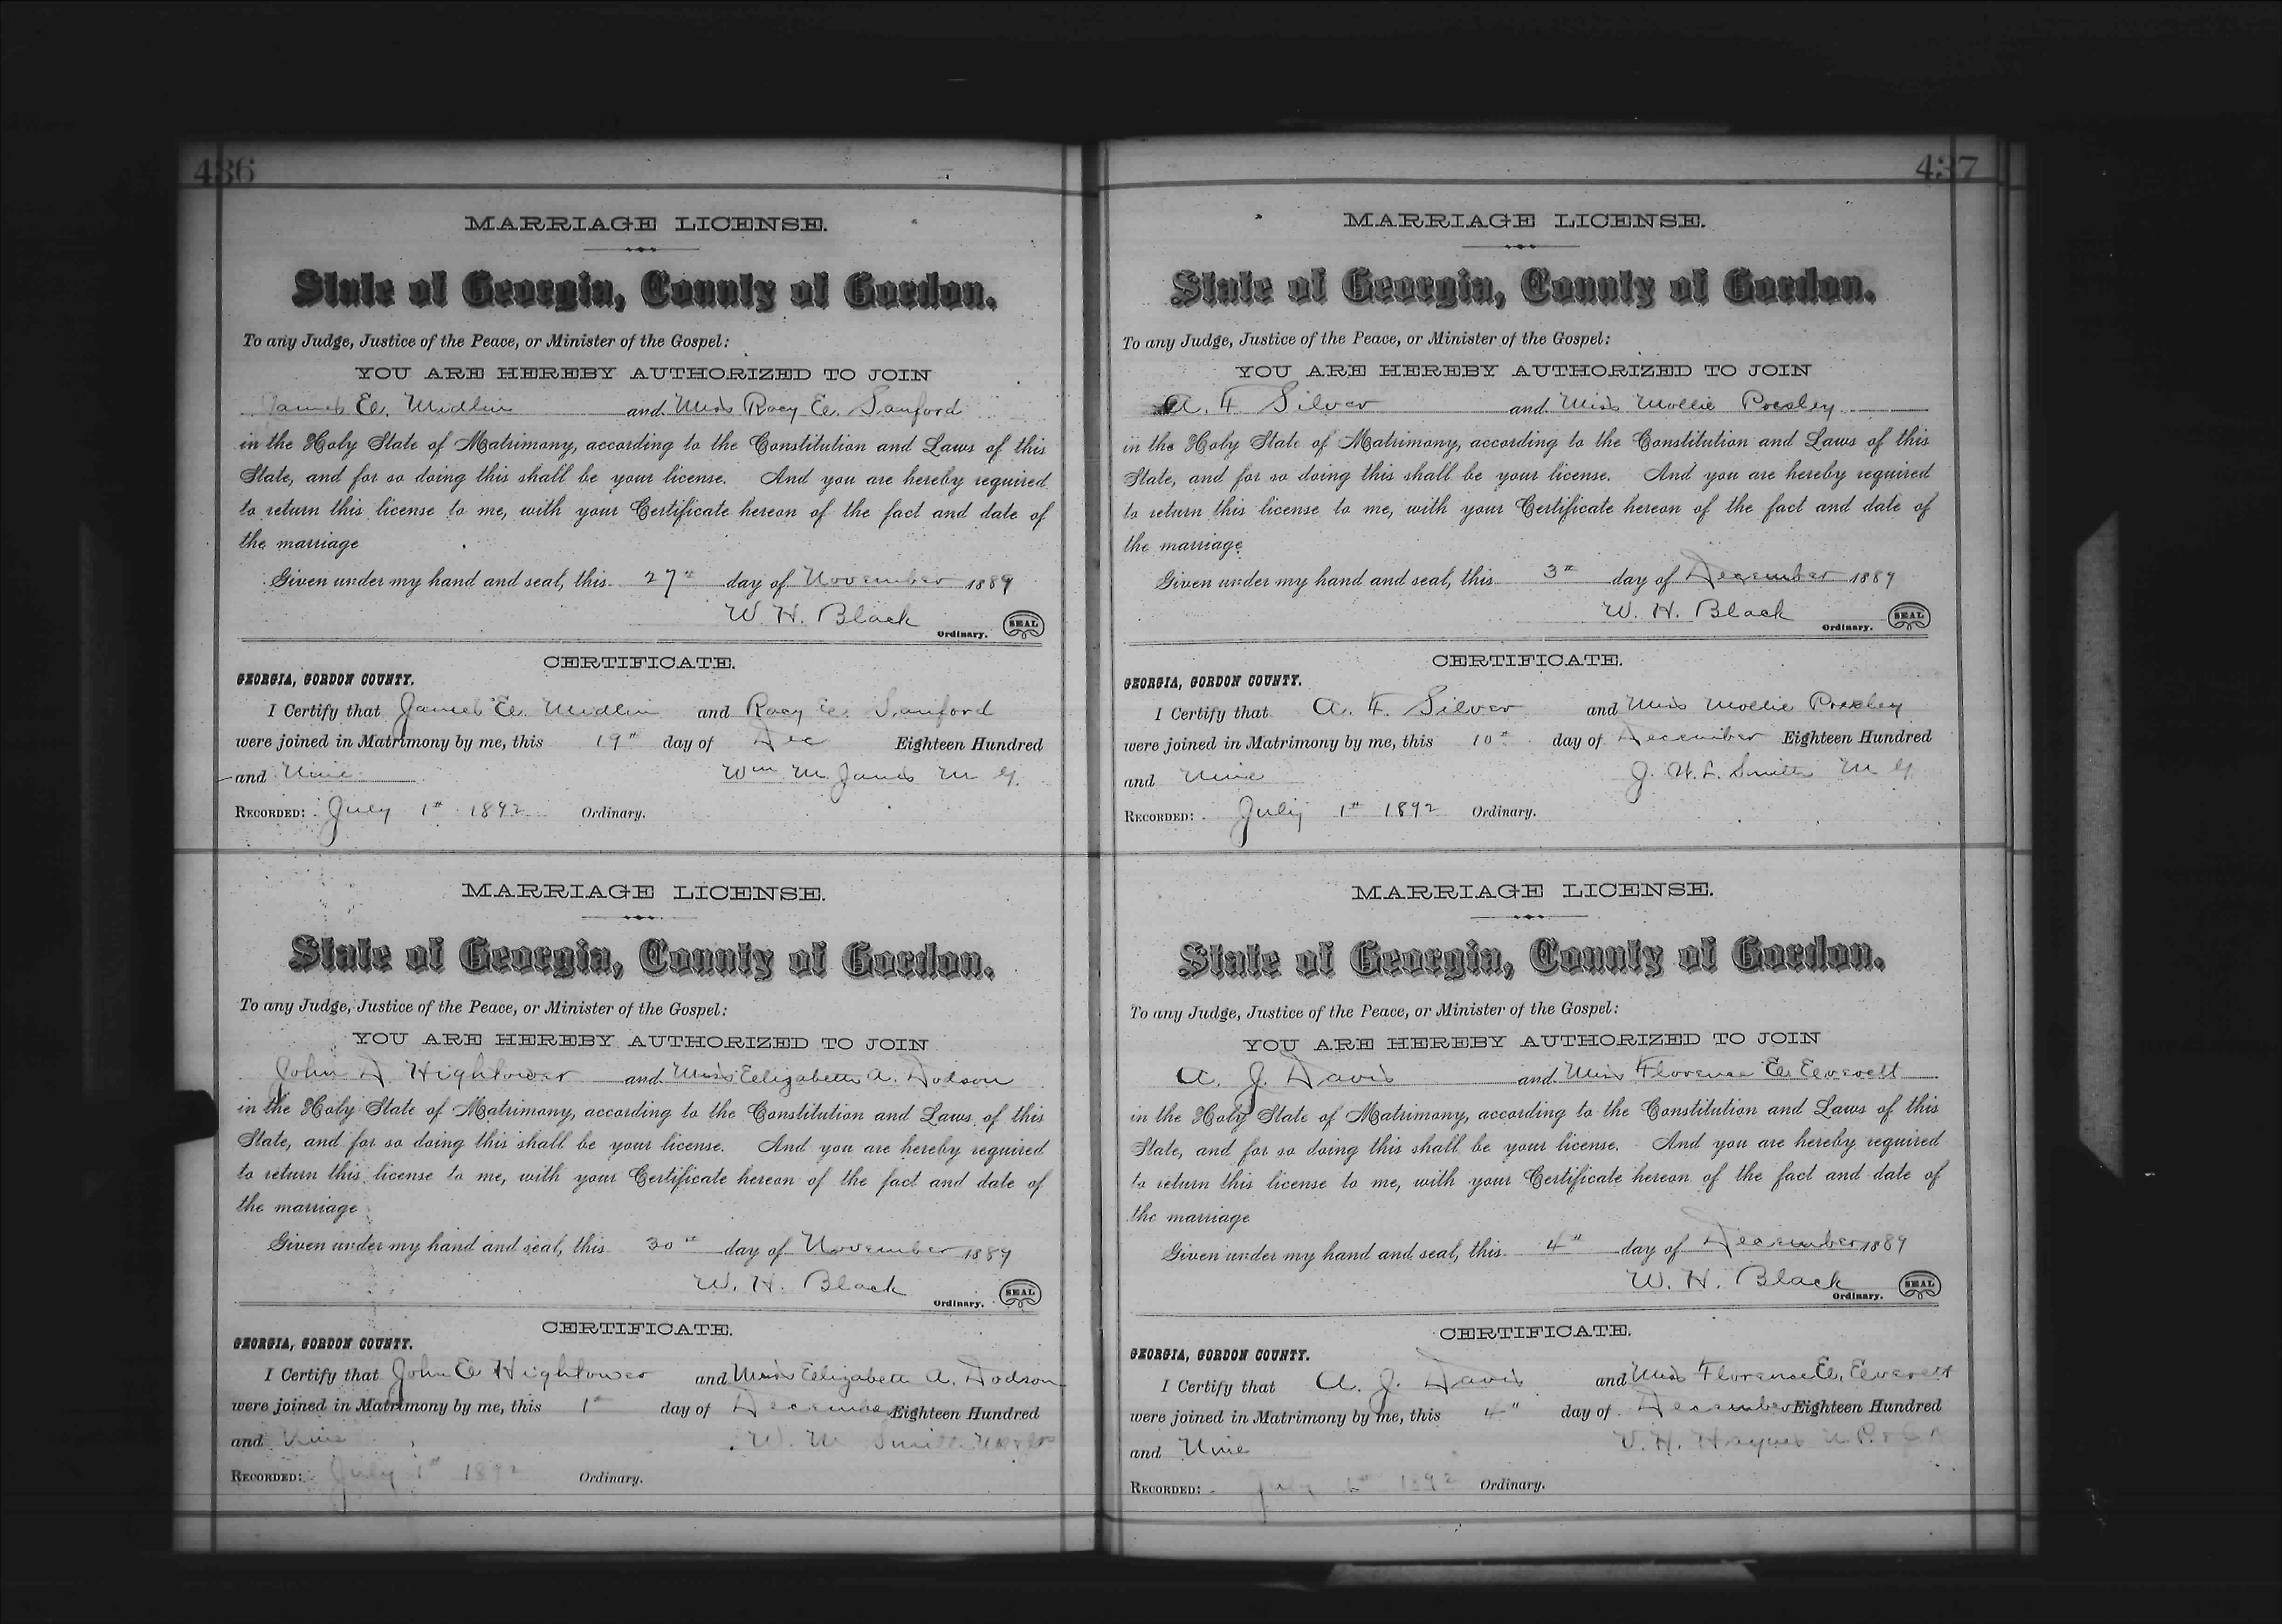 436
MARRIAGE LICENSE.
State of Georgia, County of Gordon.
To any Judge, Justice of the Peace, or Minister of the Gospel:
YOU ARE HEREBY AUTHORIZED TO JOIN
James E. Midlin and Miss Roey E. Sanford
in the Holy State of Matrimony, according to the Constitution and Laws of this
State, and for so doing this shall be your license. And you are hereby required
to return this license to me, with your Certificate hereon of the fact and date of
the marriage
Given under my hand and seal, this 27th day of November 1889
W. H. Black
Ordinary. SEAL
CERTIFICATE.
GEORGIA, GORDON COUNTY.
I Certify that James E. Midlin and Roey E. Sanford
were joined in Matrimony by me, this 19th day of Dec Eighteen Hundred
and Nine Wm M M G.
RECORDED: July 1st 1892 Ordinary.
MARRIAGE LICENSE.
State of Georgia, County of Gordon.
To any Judge, Justice of the Peace, or Minister of the Gospel:
YOU ARE HEREBY AUTHORIZED TO JOIN
John Hightower and Miss Elizabeth A. Dodson
in the Holy State of Matrimony, according to the Constitution and Laws of this
State, and for so doing this shall be your license. And you are hereby required
to return this license to me, with your Certificate hereon of the fact and date of
the marriage
Given under my hand and seal, this 30th day of November 1889
W. H. Black
Ordinary. SEAL
CERTIFICATE.
GEORGIA, GORDON COUNTY.
I Certify that John E Hightower and Miss Elizabeth A. Dodson
were joined in Matrimony by me, this 1st day of December Eighteen Hundred
and Nine W. M Smith
RECORDED: July 1st 1892 Ordinary.
437
MARRIAGE LICENSE.
State of Georgia, County of Gordon.
To any Judge, Justice of the Peace, or Minister of the Gospel:
YOU ARE HEREBY AUTHORIZED TO JOIN
A. F Silver and Miss Mollie Presley
in the Holy State of Matrimony, according to the Constitution and Laws of this
State, and for so doing this shall be your license. And you are hereby required
to return this license to me, with your Certificate hereon of the fact and date of
the marriage
Given under my hand and seal, this 3rd day of December 1889
W. H. Black
Ordinary. SEAL
CERTIFICATE.
GEORGIA, GORDON COUNTY.
I Certify that A. F. Silver and Miss Mollie Presley
were joined in Matrimony by me, this 10th day of December Eighteen Hundred
and Nine J. W. L. Smith M G.
RECORDED: July 1st 1892 Ordinary.
MARRIAGE LICENSE.
State of Georgia, County of Gordon.
To any Judge, Justice of the Peace, or Minister of the Gospel:
YOU ARE HEREBY AUTHORIZED TO JOIN
A. J. Davis and Miss Florence E. Everett
in the Holy State of Matrimony, according to the Constitution and Laws of this
State, and for so doing this shall be your license. And you are hereby required
to return this license to me, with your Certificate hereon of the fact and date of
the marriage
Given under my hand and seal, this 4th day of December 1889
W. H. Black
Ordinary. SEAL
CERTIFICATE.
GEORGIA, GORDON COUNTY.
I Certify that A. J. Davis and Miss Florence E. Everett
were joined in Matrimony by me, this 4th day of December Eighteen Hundred
and Nine V. H. Haynes
RECORDED: July 1st 1892 Ordinary.